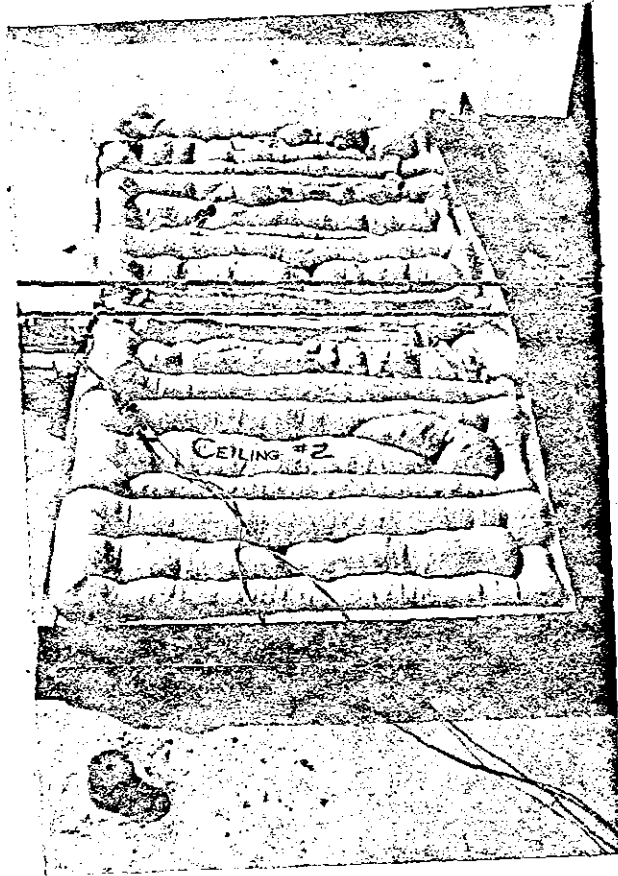 CEILING #2